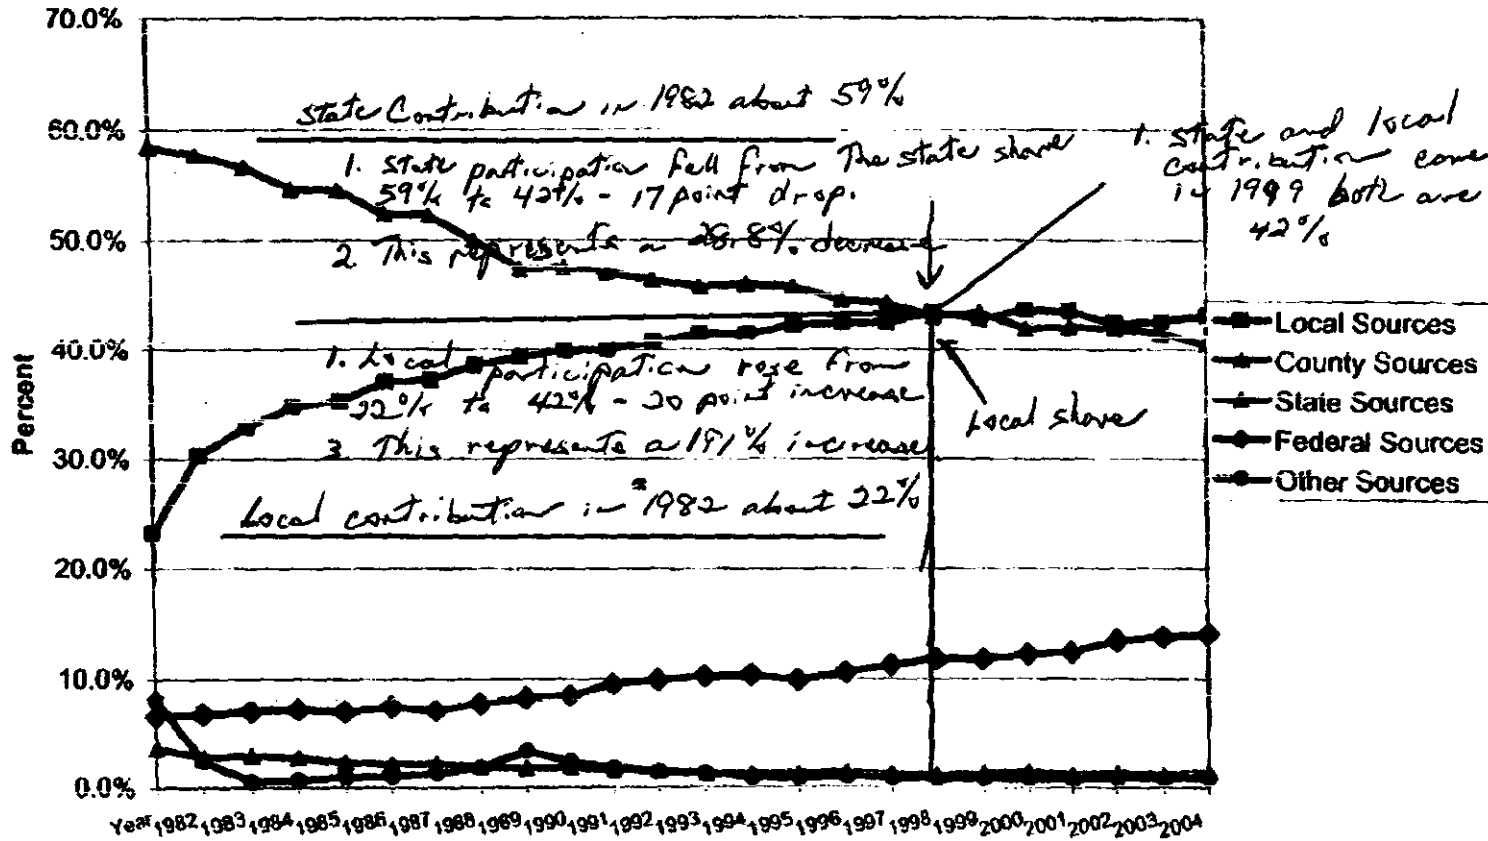 70.0%
60.0%
50.0%
40.0%
30.0%
20.0%
10.0%
0.0%
Percent
State Contribution in 1982 about 59%
1. State participation fell from The state share
59% to 42% - 17 point drop.
2 This represents a 28.8% decrease
1. State and local
contribution come
in 1999 both are
42%
1. Local participation rose from
22% to 42% - 20 point increase
3 This represents a 191% increase
Local share
Local contribution in 1982 about 22%
Local Sources
County Sources
State Sources
Federal Sources
Other Sources
Year 1982 1983 1984 1985 1986 1987 1988 1989 1990 1991 1992 1993 1994 1995 1996 1997 1998 1999 2000 2001 2002 2003 2004